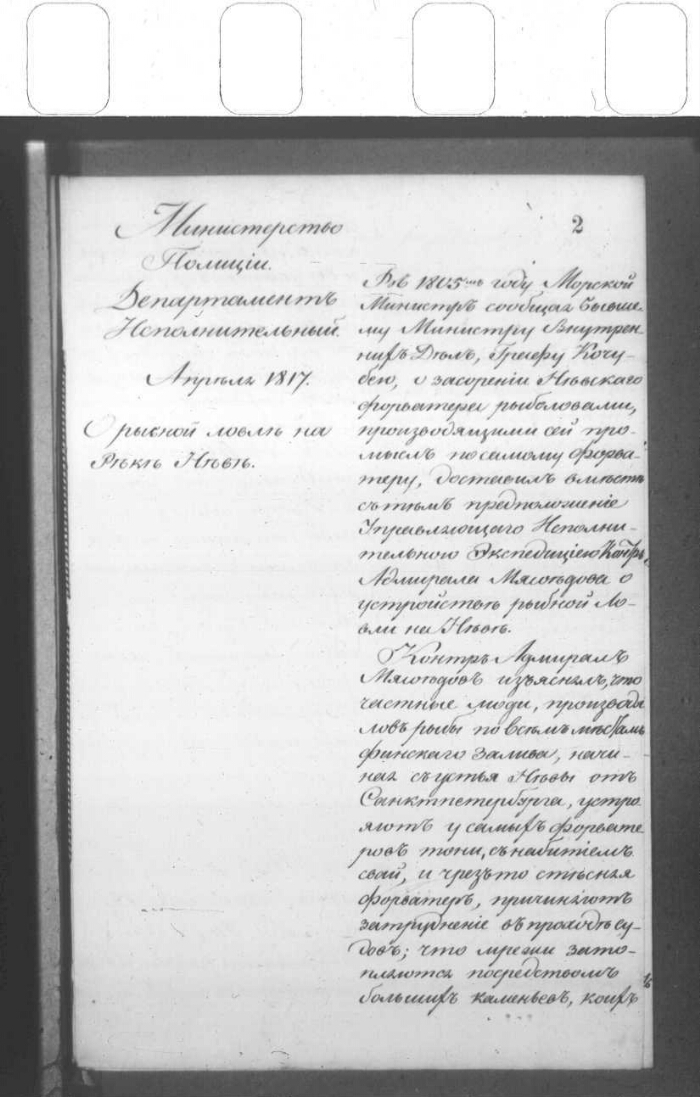 2
Министерство
Полиціи.
Департаментъ
Исполнительный.
Апрѣля 1817.
О рыбной ловлѣ на
Рѣкѣ Невѣ.
Въ 1805мъ году Морской
Министръ сообщая бывше-
му Министру Внутрен-
нихъ Дѣлъ, Графу Кочу-
бею, о засореніи Невскаго
форватера рыболовами,
производящими сей про-
мыслъ по самому форва-
теру, доставилъ вмѣстѣ
съ тѣмъ предположеніе
Управляющаго Исполни-
тельною Экспедиціею Контръ
Адмирала Мясоѣдова о
устройствѣ рыбной ло-
вли на Невѣ.
Контръ Адмиралъ
Мясоѣдовъ изъяснялъ, что
частные люди, производя
ловъ рыбы по всѣмъ мѣстамъ
финскаго залива, начи-
ная съ устья Невы отъ
Санктпетербурга, устро-
яютъ у самыхъ форвате-
ровъ тони, съ набитіемъ
свай, и чрезъ то стѣсняя
форватеръ, причиняютъ
затрудненіе въ проходѣ су-
довъ; что мрежи зато-
пляются посредствомъ
большихъ каменьевъ, коихъ